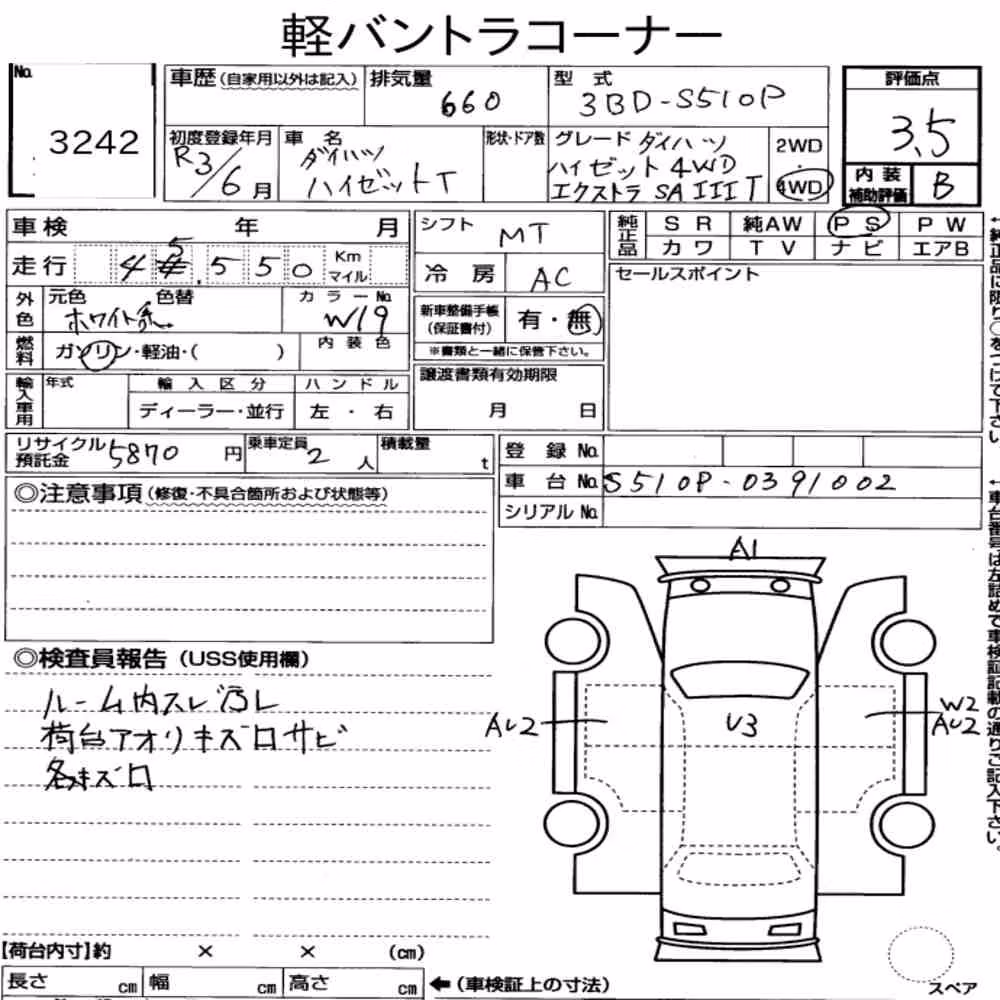 軽バントラコーナー
No.
3242
車歴(自家用以外は記入)
排気量
660
型 式
3BD-S510P
評価点
3.5
初度登録年月
R3/6月
車 名
ダイハツ
ハイゼットT
形状・ドア数
グレード ダイハツ
ハイゼット 4WD
エクストラ SAIIIT
2WD
・
4WD
内 装
補助評価
B
車検 年 月
走行 4 5.550 Km
マイル
シフト MT
冷 房 AC
純正品
SR 純AW PS PW
カワ TV ナビ エアB
セールスポイント
外色
元色 色替
ホワイト系
カラーNo.
W19
新車整備手帳
(保証書付)
有・無
※書類と一緒に保管下さい。
燃料
ガソリン・軽油・( )
内装色
輸入車用
年式
輸入区分
ディーラー・並行
ハンドル
左 ・ 右
譲渡書類有効期限
月 日
リサイクル
預託金
5870 円
乗車定員
2 人
積載量
t
登 録 No.
車 台 No. S510P-0391002
シリアル No.
◎注意事項(修復・不具合箇所および状態等)
◎検査員報告(USS使用欄)
ルーム内スレ汚レ
荷台アオリキズ凹サビ
各キズ凹
A1
AU2
U3
W2
AU2
←純正品に限り○をつけて下さい
←車台番号は左詰めで車検証記載の通りご記入下さい。
【荷台内寸】約 × × (cm)
長さ cm 幅 cm 高さ cm
←(車検証上の寸法)
スペア